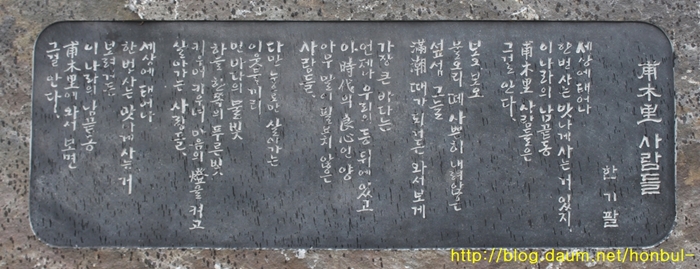 甫木里 사람들
한기팔
세상에 태어나
한번 사는 맛나게 사는 거 있지.
이 나라의 남끝동
甫木里 사람들은
그걸 안다.
보오 보오
물오리 떼 사뿐히 내려앉은
섶섬 그늘
滿潮 때가 되거든 와서 보게
가장 큰 바다는
언제나 우리 등 뒤에 있고
이 時代의 良心인 양
아무 말이 필요치 않은
사람들.
다만 눈으로만 살아가는
이웃들끼리
먼 바다의 물빛
하늘 한쪽의 푸른 빛
키우며 키우며 마음의 燈을 켜고
살아가는 사람들.
세상에 태어나
한번 사는 맛나게 사는 거
보려거든
이 나라의 남끝동
甫木里에 와서 보면
그걸 안다.
http://blog.daum.net/honbul-